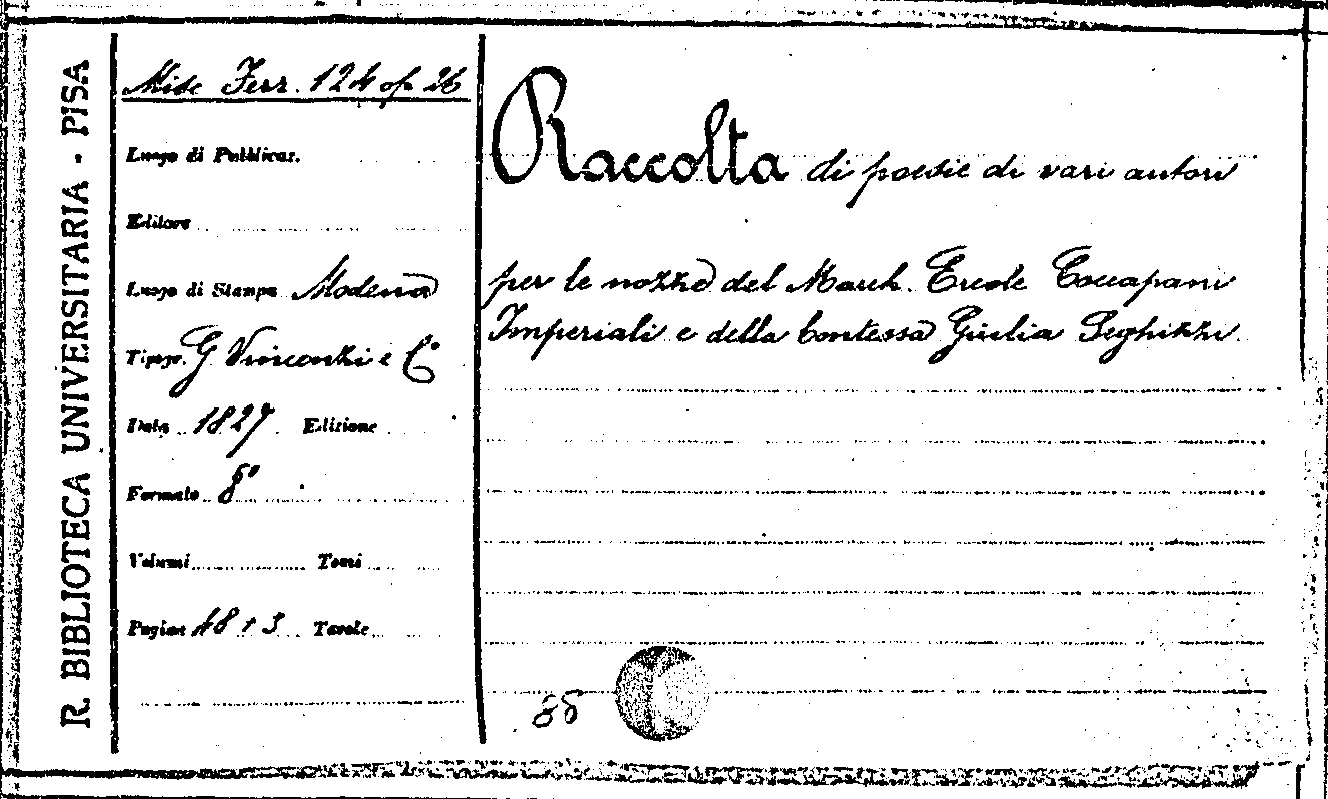 R. BIBLIOTECA UNIVERSITARIA - PISA
Misc Ferr. 124 op 26
Luogo di Pubblicaz.
Editore
Luogo di Stampa Modena
Tipogr. G Vincenzi e Cº
Data 1827 Edizione
Formato 8º
Volumi Tomi
Pagine 48 + 3 Tavole
Raccolta di poesie di vari autori
per le nozze del March. Ercole Coccapani
Imperiali e della Contessa Giulia Seghizzi.